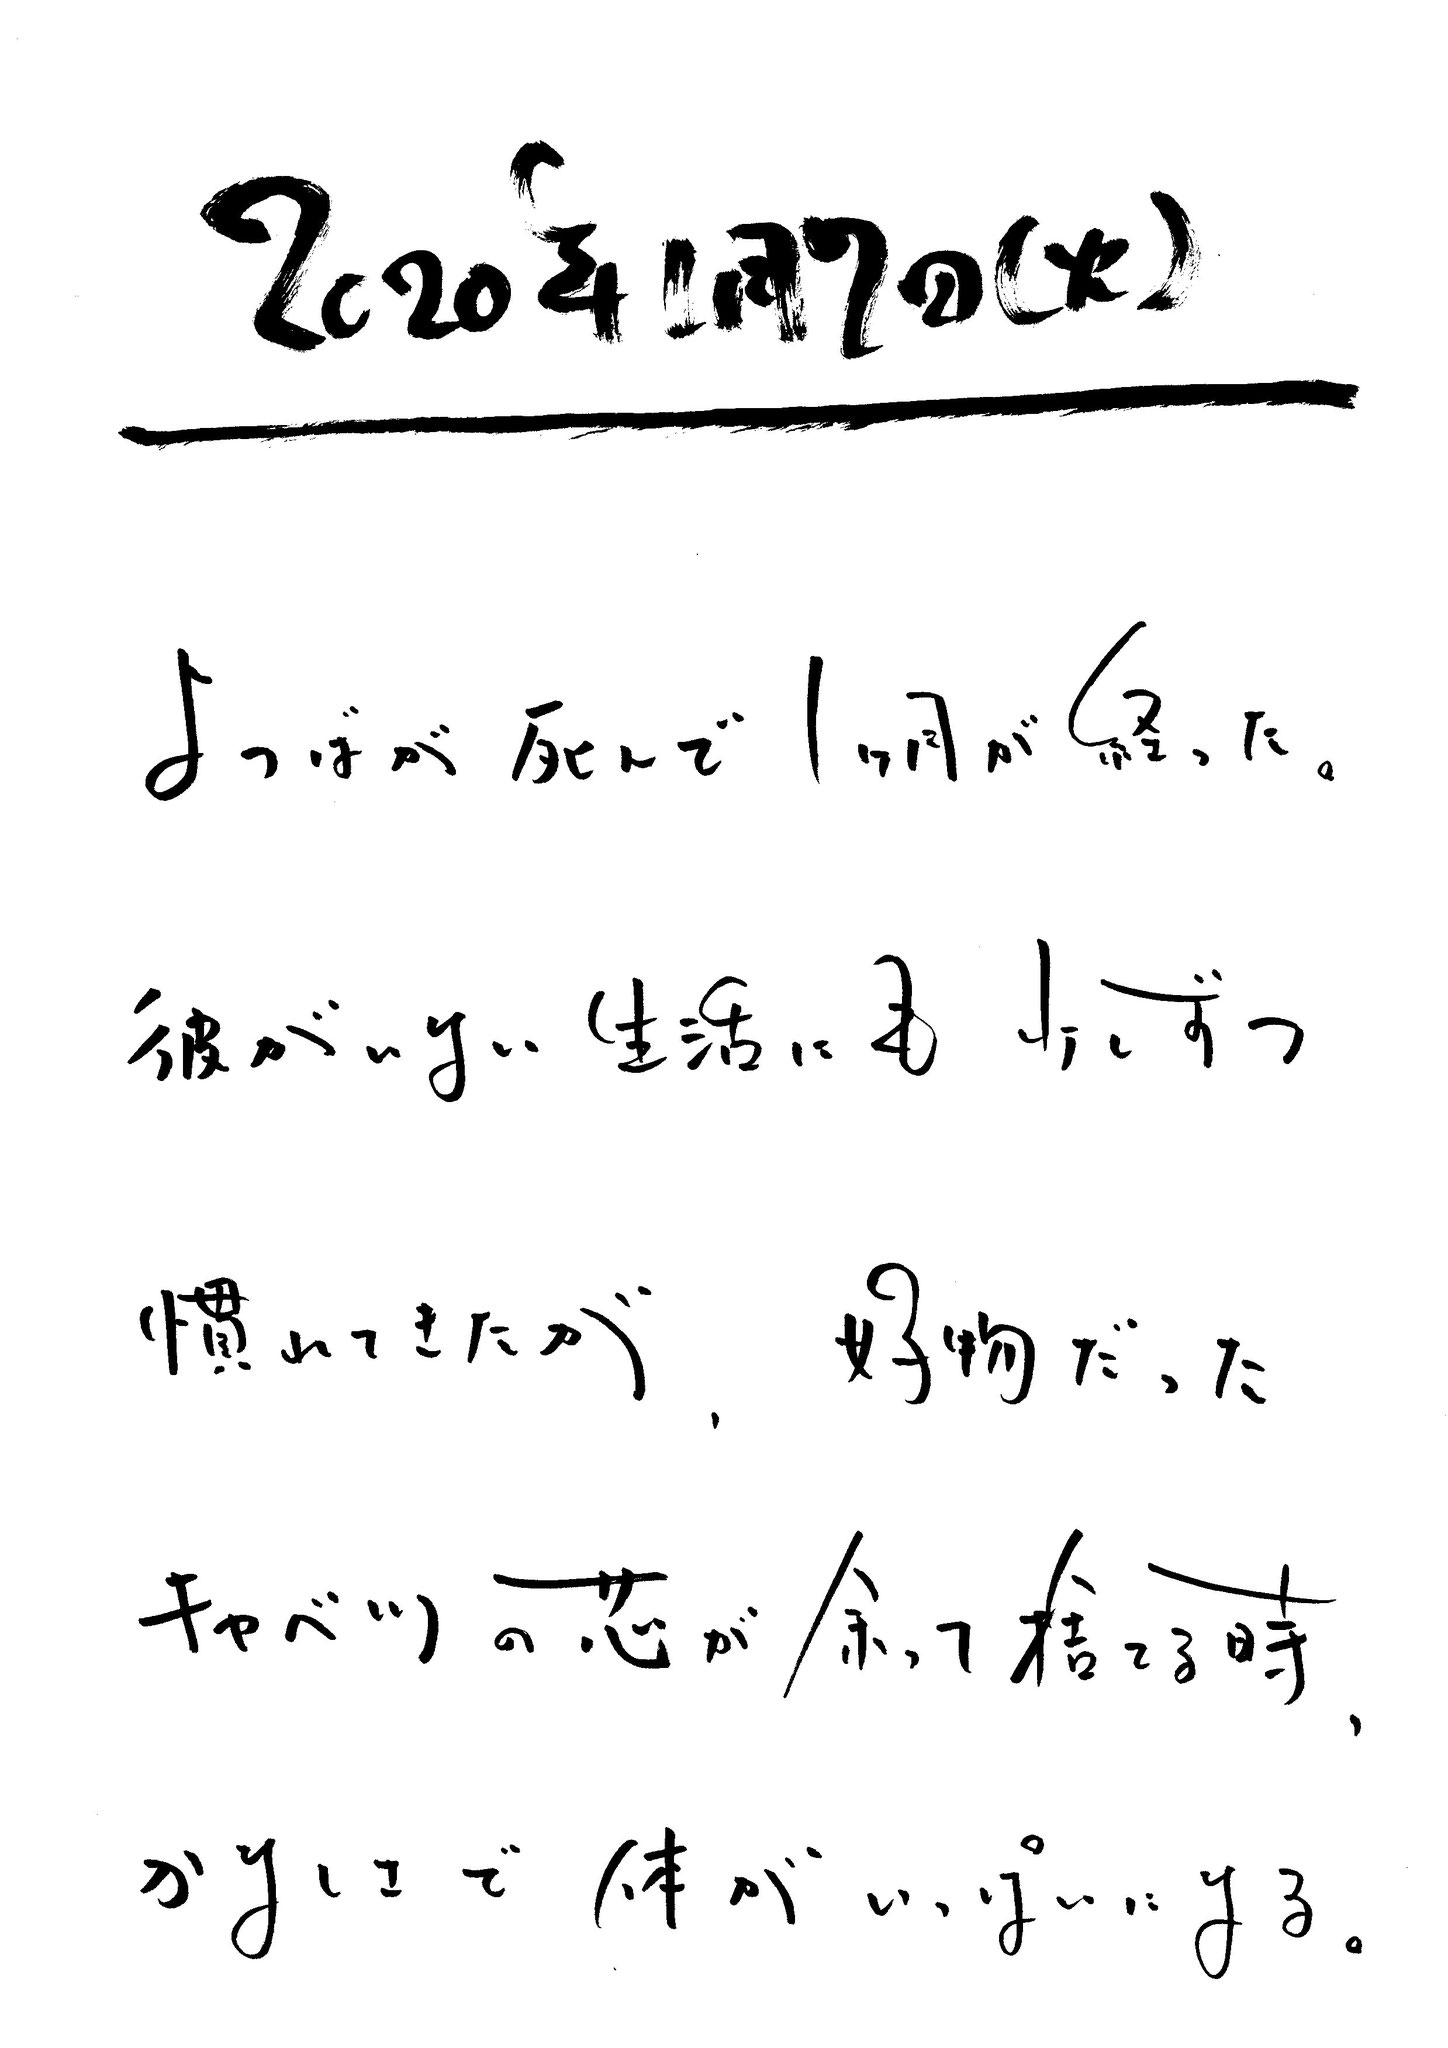 2020年1月7日(火)
よつばが死んで1ヶ月が経った。
彼がいない生活にも少しずつ
慣れてきたが、好物だった
キャベツの芯が余って捨てる時、
かなしさで体がいっぱいになる。